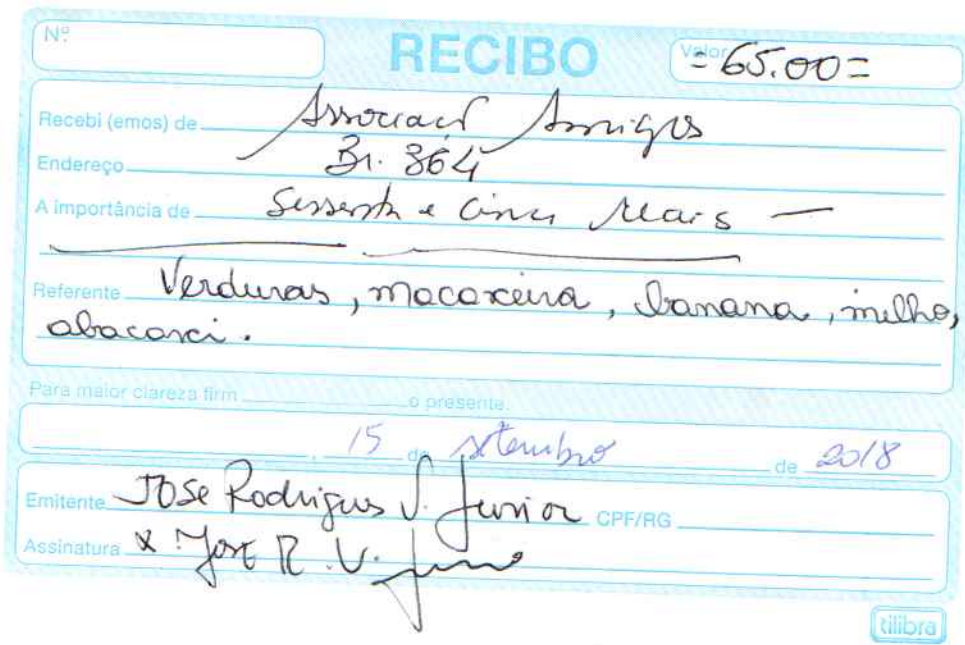 Nº RECIBO Valor =65.00=
Recebi (emos) de Associaçã Amigos
Endereço Br. 364
A importância de Sessenta e Cinco Reais —
Referente Verduras, macaxeira, banana, milho,
abacaxi.
Para maior clareza firm o presente.
, 15 de setembro de 2018
Emitente José Rodrigues V. Junior CPF/RG
Assinatura x José R. V. Juno
tilibra